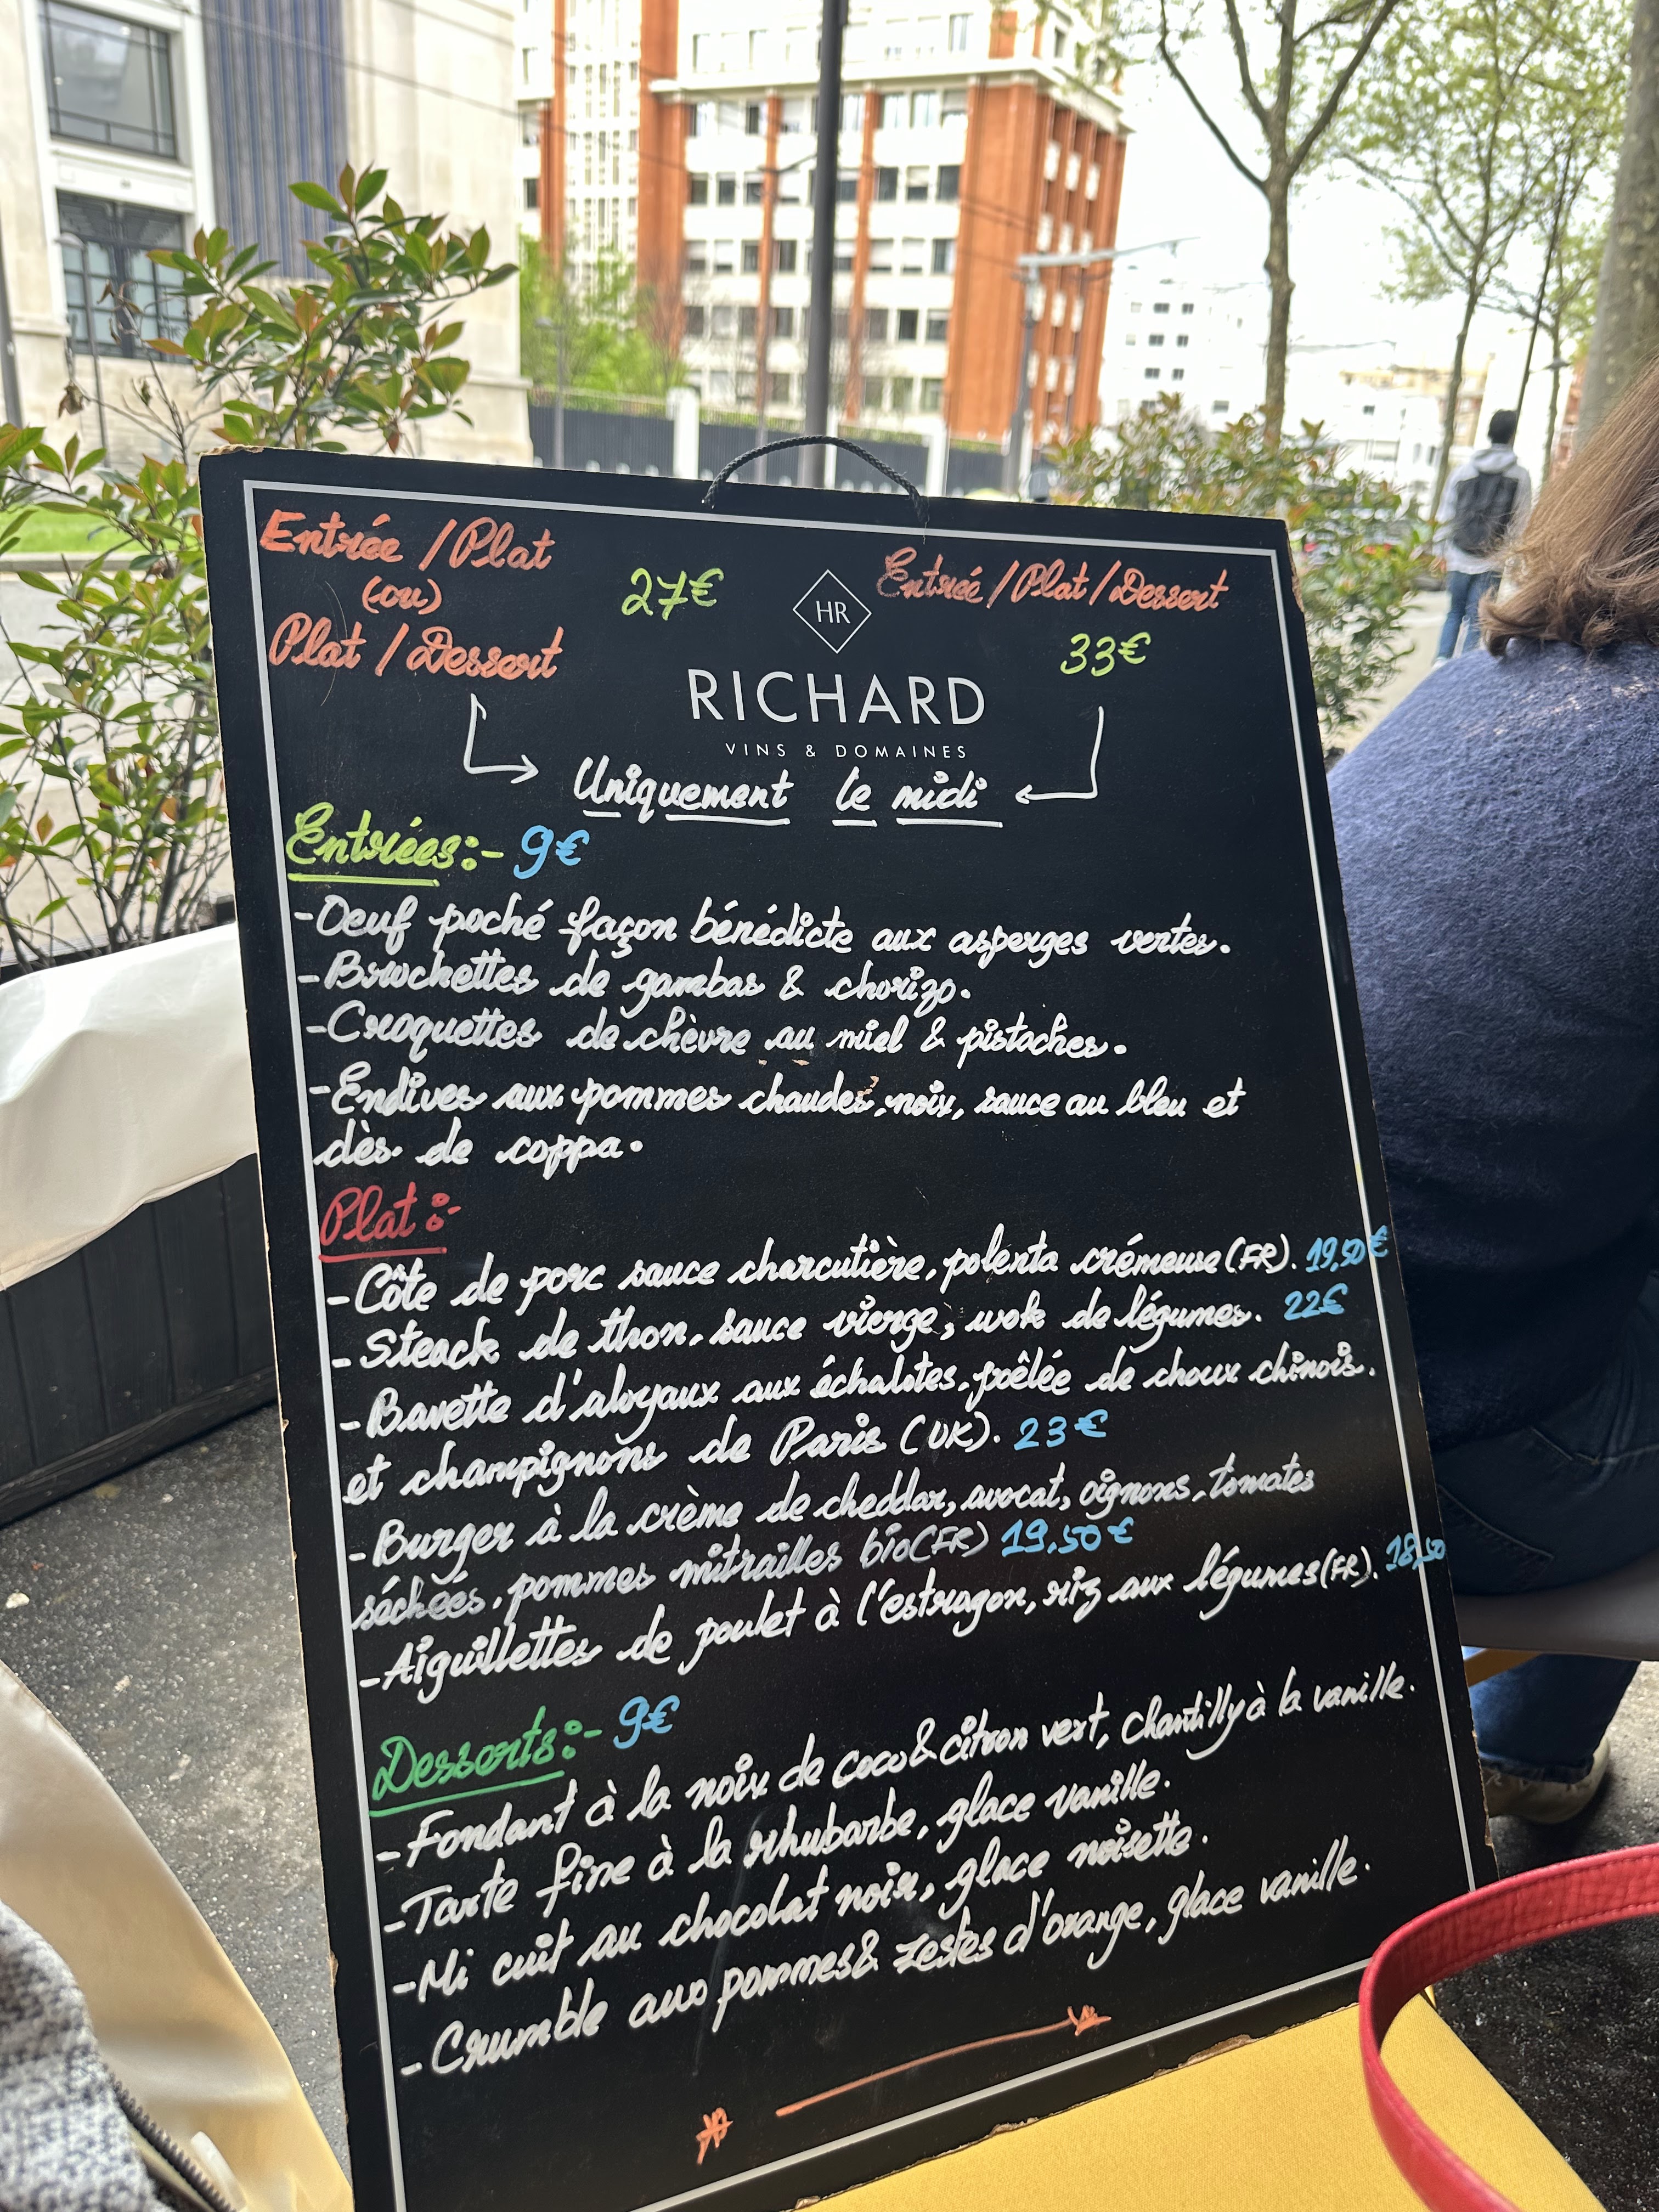 Entrée / Plat
(ou)
Plat / Dessert
27€
HR
RICHARD
VINS & DOMAINES
Entrée / Plat / Dessert
33€
Uniquement le midi
Entrées:- 9€
-Oeuf poché façon bénédicte aux asperges vertes.
-Brochettes de gambas & chorizo.
-Croquettes de chèvre au miel & pistaches.
-Endives aux pommes chaudes, noix, sauce au bleu et
dès de coppa.
Plat:-
-Côte de porc sauce charcutière, polenta crémeuse (FR). 19,50€
-Steack de thon, sauce vierge, wok de légumes. 22€
-Bavette d'aloyaux aux échalotes, poêlée de choux chinois.
et champignons de Paris (UK). 23€
-Burger à la crème de cheddar, avocat, oignons, tomates
séchées, pommes mitrailles bio (FR) 19,50€
-Aiguillettes de poulet à l'estragon, riz aux légumes (FR). 18,50
Desserts:- 9€
-Fondant à la noix de coco & citron vert, chantilly à la vanille.
-Tarte fine à la rhubarbe, glace vanille.
-Mi cuit au chocolat noir, glace noisette.
-Crumble aux pommes & zestes d'orange, glace vanille.